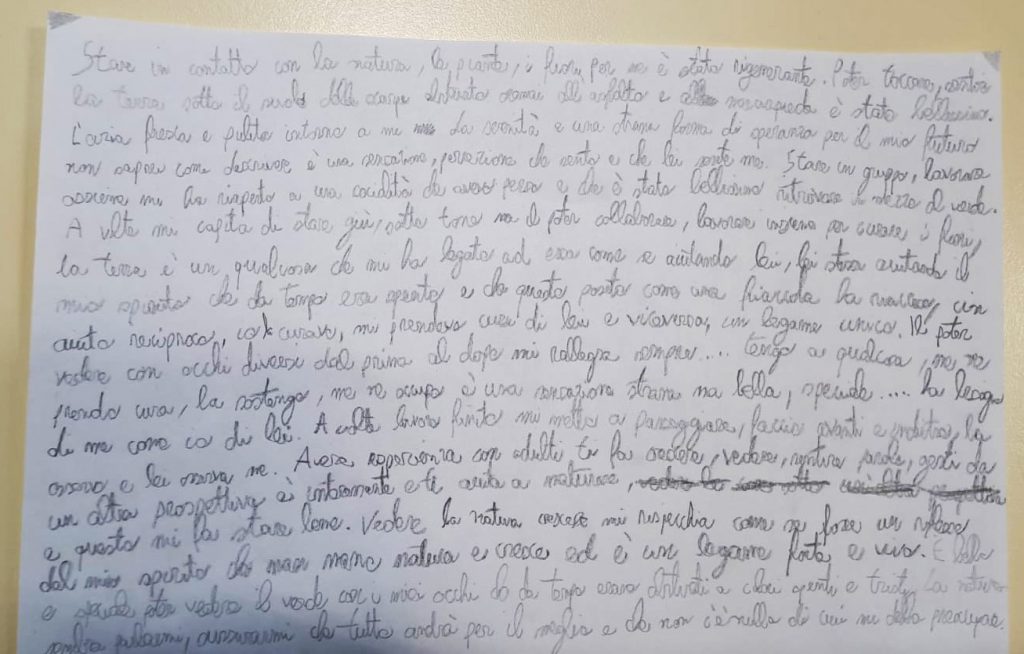 Stare in contatto con la natura, le piante, i fiori per me è stato rigenerante. Poter toccare, sentire
la terra sotto il suolo delle scarpe abituato ormai all asfalto e è stato bellissimo.
L'aria fresca e pulita intorno a me da serenità e una strana forma di speranza per il mio futuro
non saprei come descrivere è una sensazione, percezione che sento e che lei sente me. Stare in gruppo, lavorare
assieme mi ha riaperto a una socialità che avevo perso e che è stato bellissimo ritrovare in mezzo al verde.
A volte mi capita di stare giù, sotto tono ma il poter collaborare, lavorare insieme per curare i fiori,
la terra è un qualcosa che mi ha legato ad essa come se aiutando lei, lei stesse aiutando il
mio spirito che da tempo era spento e da questo posto come una fiaccola ha un
aiuto reciproco, io curavo, mi prendevo cura di lei e viceversa, un legame unico. Il poter
vedere con occhi diversi dal prima al dopo mi rallegra sempre.... tengo a qualcosa, me ne
prendo cura, la sostengo, me ne occupo è una sensazione strana ma bella, speciale.... ha bisogno
di me come io di lei. A volte lavoro finito mi metto a passeggiare, faccio avanti e indietro, la
osservo e lei osserva me. Avere esperienza con adulti ti fa crescere, vedere, sentire parole, gesti da
un altra prospettiva è interessante e ti aiuta a maturare,
e questo mi fa stare bene. Vedere la natura crescere mi rispecchia come se fosse un riflesso
del mio spirito che man mano matura e cresce ed è un legame forte e vivo. È bello
e speciale poter vedere il verde con i miei occhi che da tempo erano abituati a colori spenti e tristi. La natura
sembra parlarmi, sussurrarmi che tutto andrà per il meglio e che non c'è nulla di cui mi debba preoccupare.